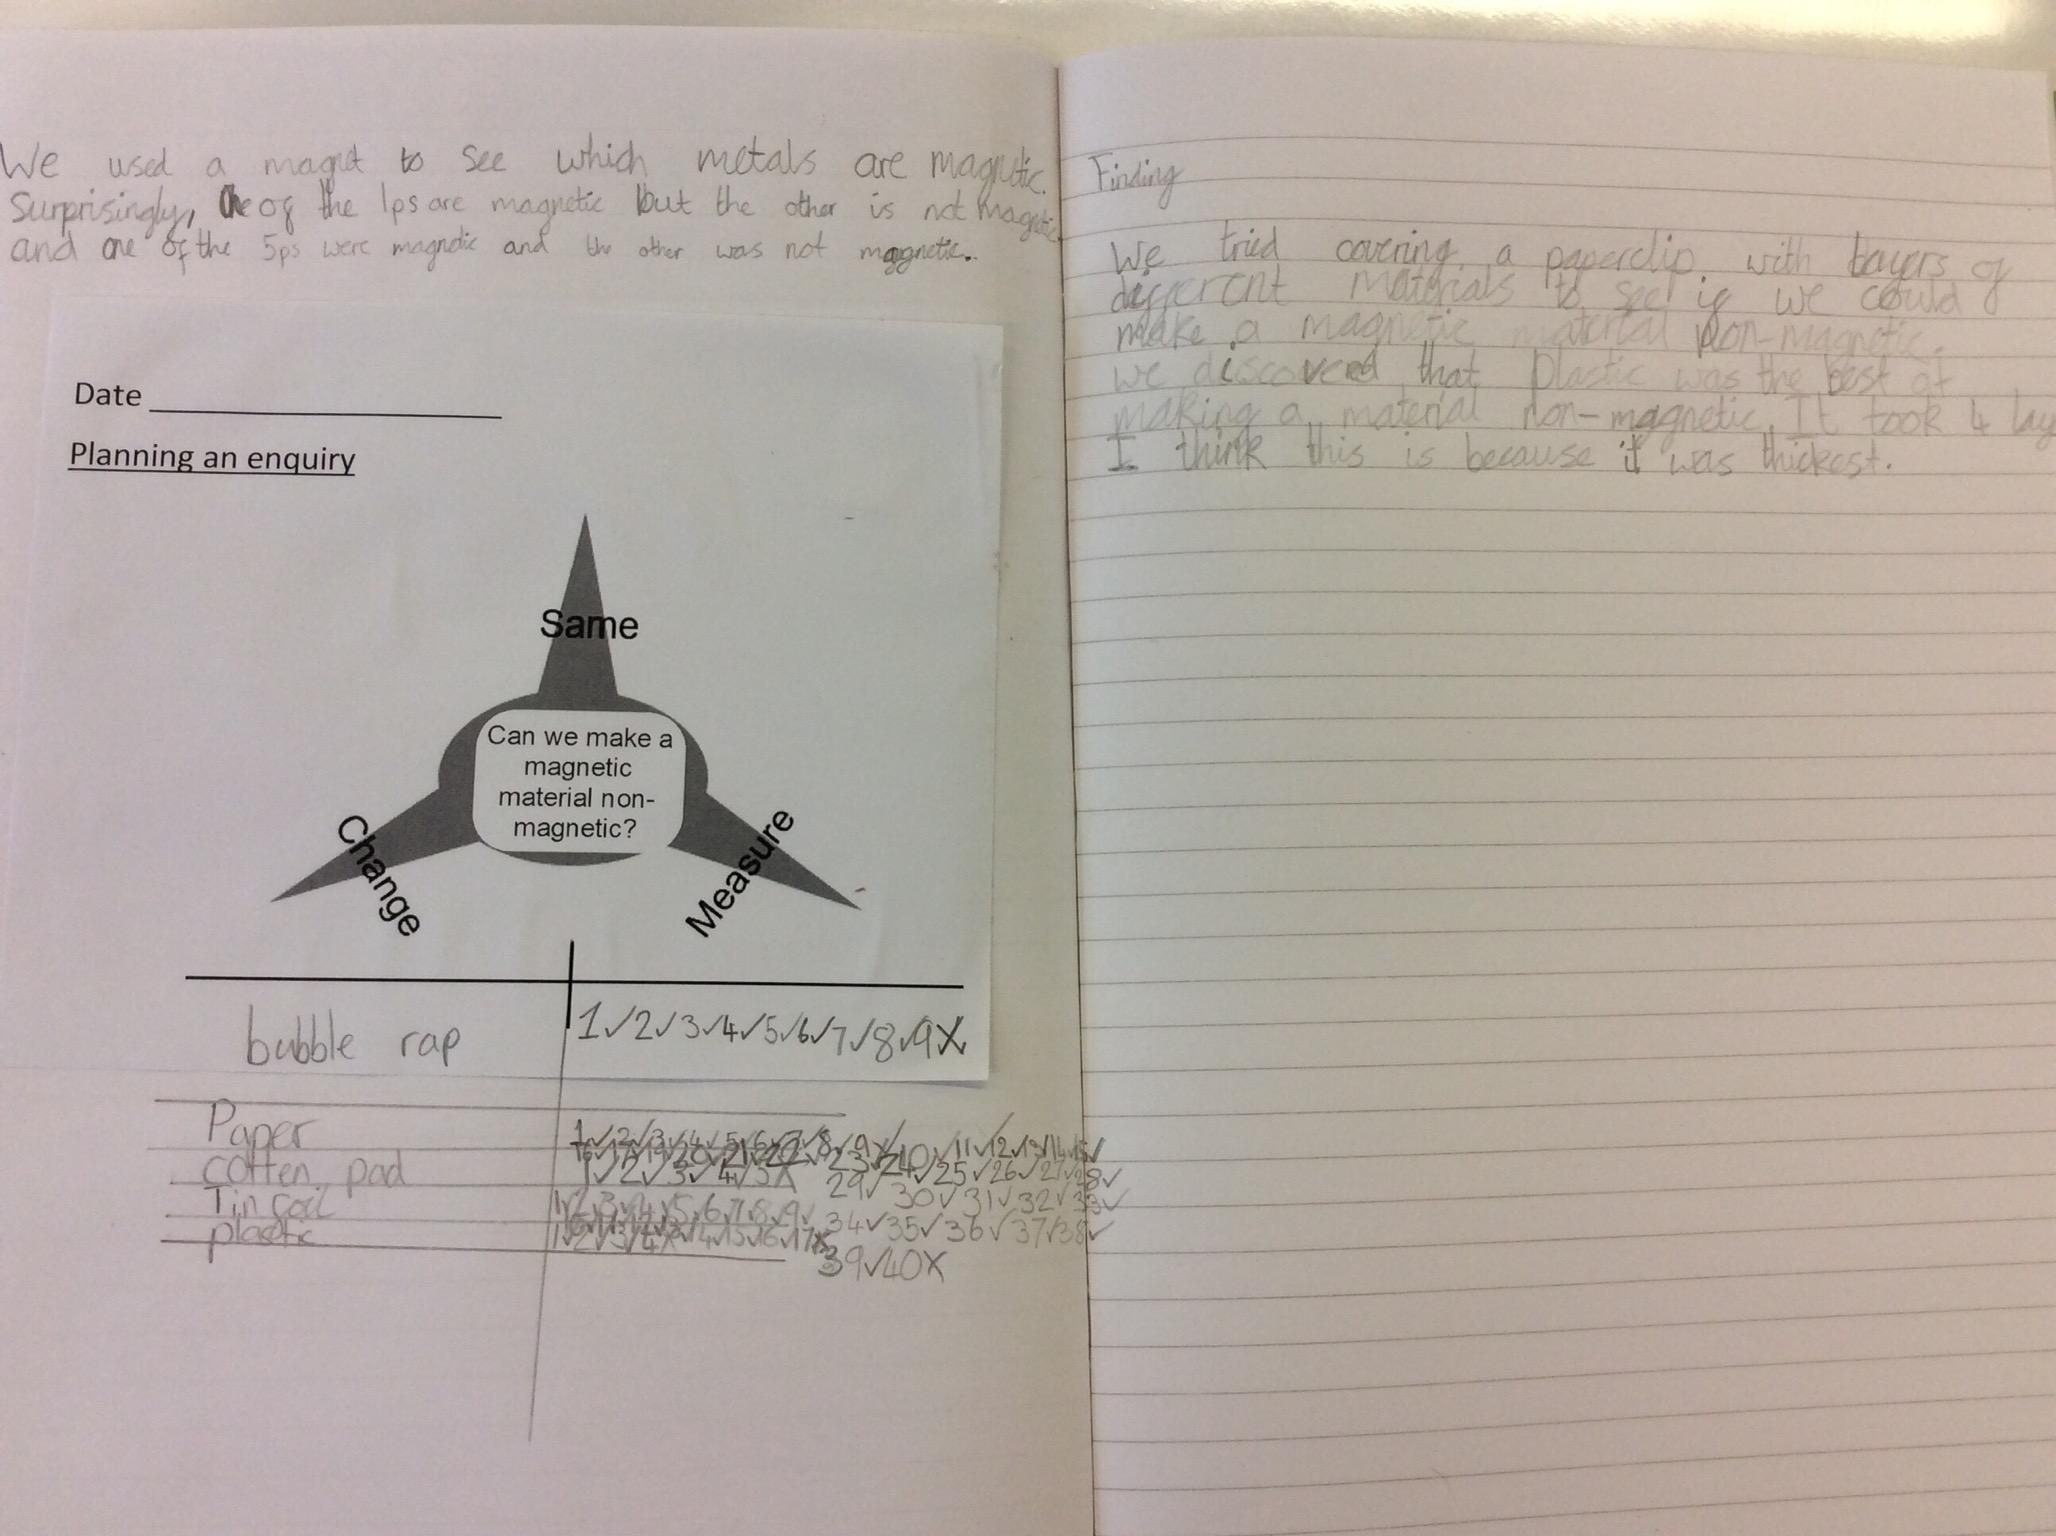 We used a magnet to see which metals are magnetic.
Surprisingly, One of the 1ps are magnetic but the other is not magnetic
and one of the 5ps were magnetic and the other was not magnetic.
Date
Planning an enquiry
Same
Can we make a
magnetic
material non-
magnetic?
Change
Measure
bubble rap
1✓2✓3✓4✓5✓6✓7✓8✓9X
Paper
1✓2✓3✓4✓5✓6✓7✓8✓9✓10✓11✓12✓13✓14✓15✓
20✓21✓22✓23✓24✓25✓26✓27✓28✓
cotten pad
1✓2✓3✓4✓5X
29✓30✓31✓32✓33✓
Tin foil
1✓2✓3✓4✓5✓6✓7✓8✓9✓
34✓35✓36✓37✓38✓
plastic
1✓2✓3✓4X
14✓15✓16✓17X
39✓40X
Finding
We tried covering a paperclip with layers of
different materials to see if we could
make a magnetic material non-magnetic.
we discovered that plastic was the best at
making a material non-magnetic. It took 4 lay
I think this is because it was thickest.